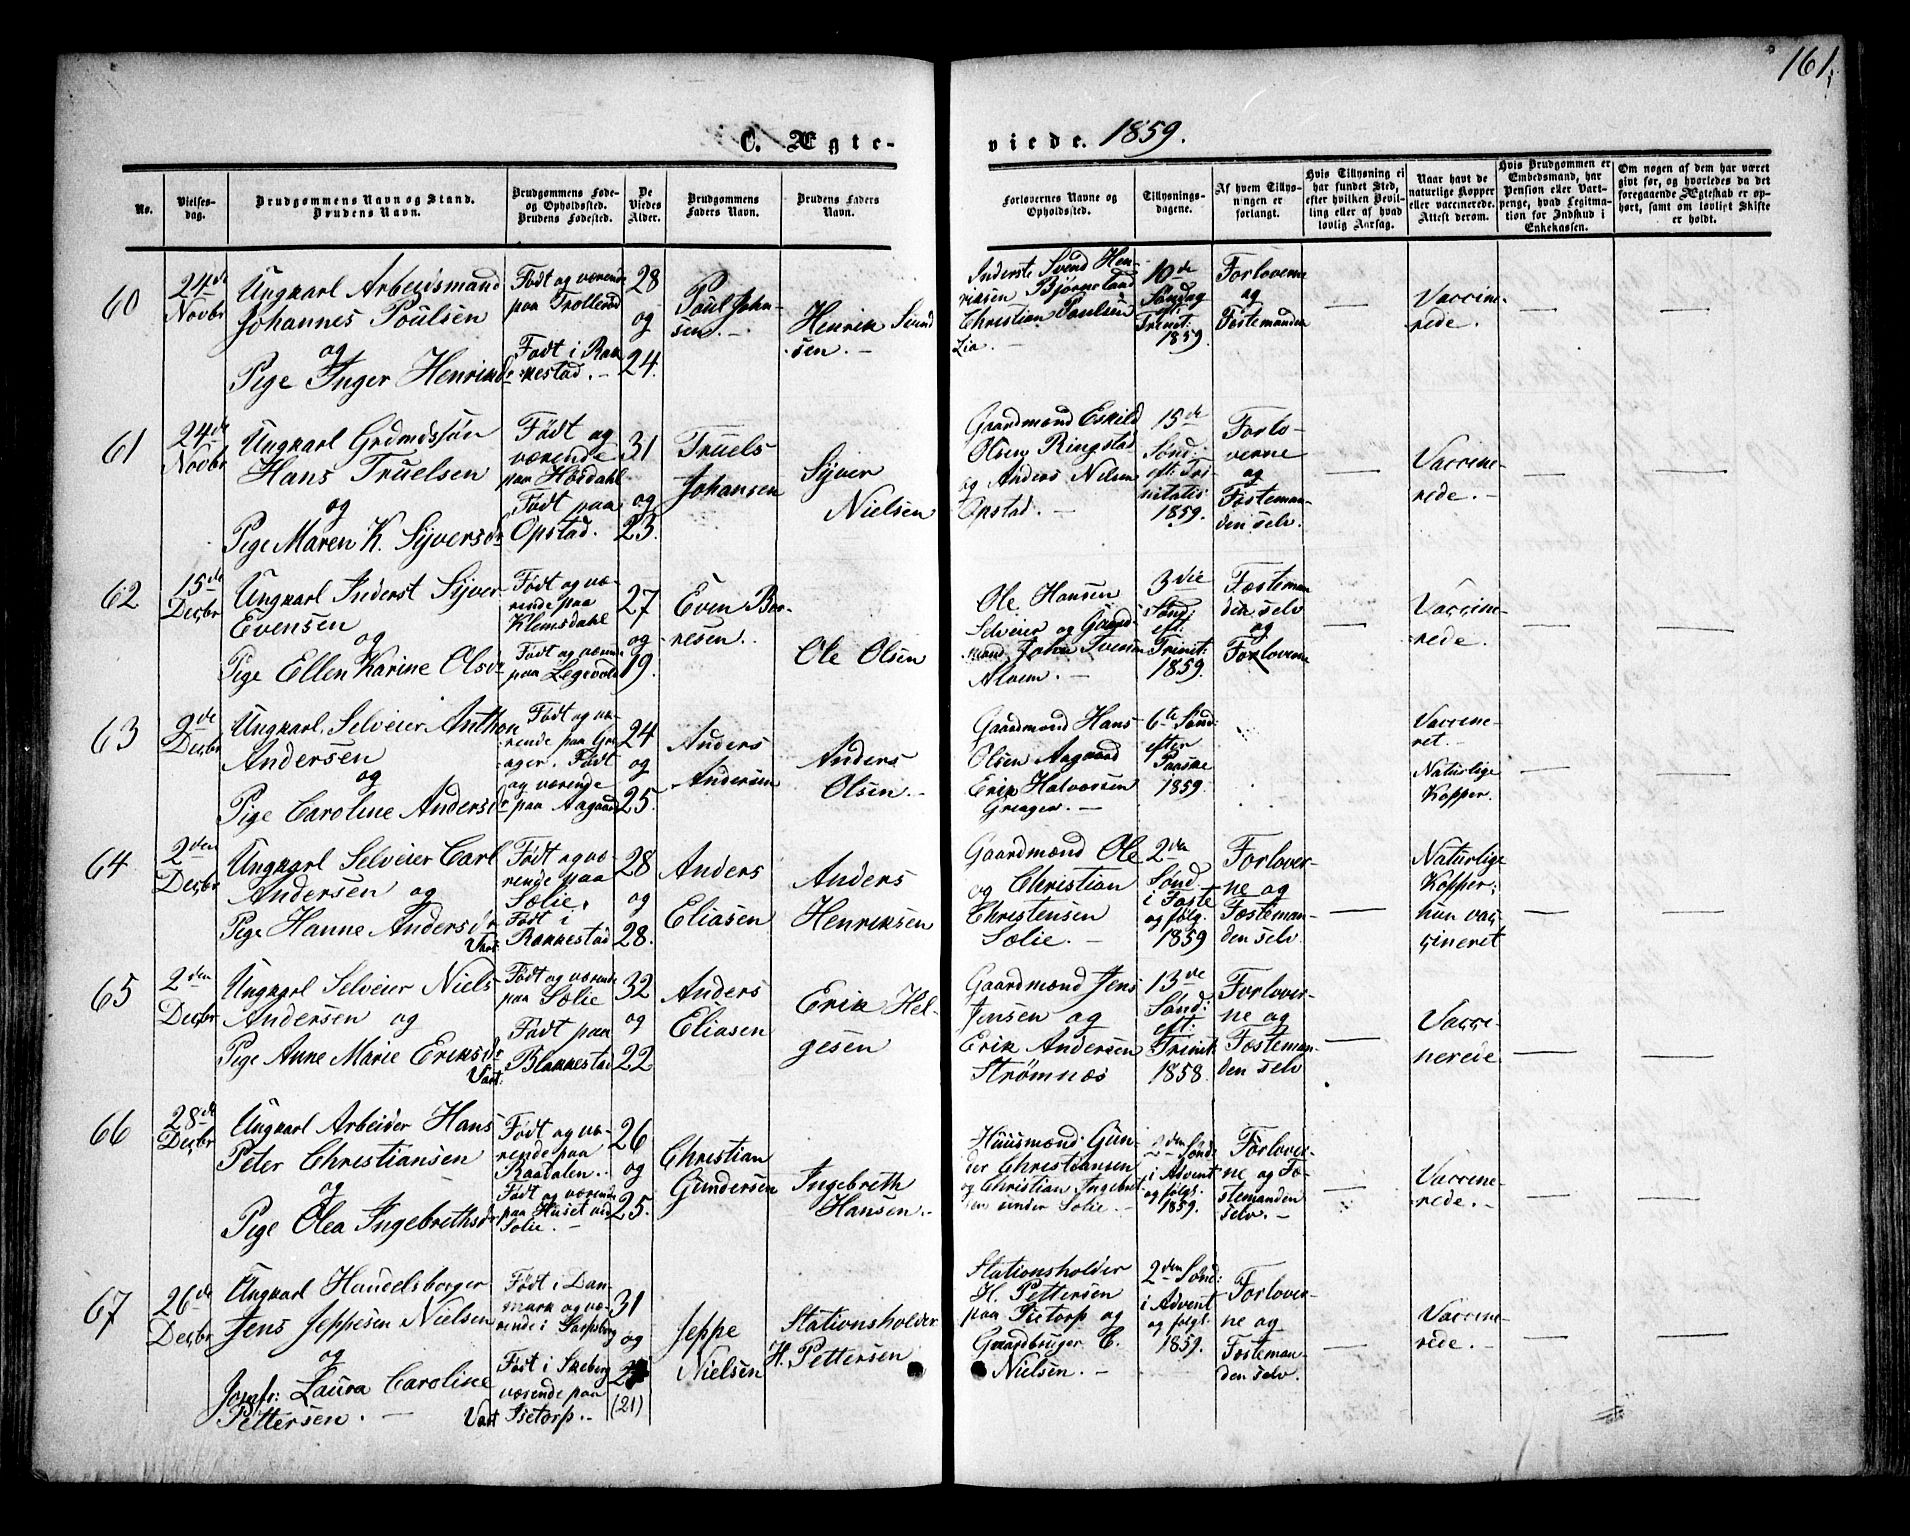 161.
C. Ægte-
viede. 1859.
No.
Vielses-
dag.
Brudgommens Navn og Stand.
Brudens Navn.
Brudgommens Føde-
og Opholdssted.
Brudens Fødested.
De
Viedes
Alder.
Brudgommens
Faders Navn.
Brudens Faders
Navn.
Forlovernes Navne og
Opholdssted.
Tillysnings-
dagene.
Af hvem Tillys-
ningen er
forlangt.
Hvis Tillysning ei
har fundet Sted,
efter hvilken Bevil-
ling eller af hvad
lovlig Aarsag.
Naar havt de
naturlige Kopper
eller vaccinerede.
Attest derom.
Hvis Brudgommen er
Embedsmand, har
Pension eller Vart-
penge, hvad Legitma-
tion for Indskud i
Enkekassen.
Om nogen af dem har været
givt før, og hvorledes da det
foregaaende Ægteskab er op-
hørt, samt om lovligt Skifte
er holdt.
60
24de
Novbr
Ungkarl Arbeidsmand
Johannes Poulsen
og
Pige Inger Henriksdr
Født og værende
paa Trollerud
Født i Rak
kestad. -
28
og
24.
Poul Johan-
sen. -
Henrik Svend
sen. -
Inderste Svend Hen-
riksen Bjørnerland
Christian Paulsen
Lia. -
10de
Søndag
eft:
Trinit:
1859.
Forloverne
og
Fæstemanden
Vaccine-
rede. -
61
24de
Novbr
Ungkarl Grdmdssøn
Hans Truelsen
og
Pige Maren K. Syversdr
Født og
værende
paa Høddahl
Født paa
Opstad.
31
og
23.
Truels
Johansen
Syver
Nielsen
Gaardmænd Eskild
Olsen Ringstad
og Anders Nilsen
Opstad. -
15de
Sønd:
eft: Tri-
nitatis
1859.
Forlo-
verne
og
Fæsteman-
den selv.
Vaccine-
rede. -
62
15de
Decbr
Ungkarl Inderst Syver
Evensen
og
Pige Ellen Karine Olsdr
Født og væ-
rende paa
Klemsdahl
Født og være
paa
27
og
19.
Even Bor-
resen.
Ole Olsen
Ole Hansen
Selveier og Gaard-
mand John Svensen
3die
Sønd:
eft.
Trinit:
1859.
Fæsteman
den selv
og
Forloverne
Vaccine-
rede.
63
2de
Decbr
Ungkarl, Selveier Anthon
Andersen
og
Pige Caroline Andersdr
Født og væ-
rende paa Gre-
ager. Født
og værende
paa Aagaard
24
og
25.
Anders
Andersen
Anders
Olsen. -
Gaardmænd Hans
Olsen Aagaard
Erik Halvorsen
Greager. -
6te Sønd:
efter
Paaske
1859.
Vaccine-
ret. -
Naturlige
Kopper.
64
2den
Decbr
Ungkarl Selveier Carl
Andersen og
Pige Hanne Andersdr
Født og væ-
rende paa
Sælie.
Født i
Vært Rakkestad
28
og
28.
Anders
Eliasen
Anders
Henriksen
Gaardmænd Ole
og Christian
Christensen
Sælie. -
2den
Sønd
i Faste
og følg.
1859
Forlover-
ne og
Fæsteman-
den selv
Naturlige
Kopper;
hun vac,
cineret
65
2den
Decbr
Ungkarl Selveier Niels
Andersen og
Pige Anne Marie Eriksdr
Født og værende
paa Sælie
Født paa
Vært: Blakkestad
32
og
22
Anders
Eliasen
Erik Hel-
gesen
Gaardmænd Jens
Jensen og
Erik Andersen
Strømnæs
13de
Sønd:
eft:
Trinit:
1858.
Forlover-
ne og
Fæsteman-
den selv
Vacci-
nerede
66
28de
Decbr
Ungkarl Arbeider Hans
Peter Christiansen
og
Pige Olea Ingebrethsdr
Født og væ-
rende paa
Raadalen. -
Født og værende
paa Huset und
Solie. -
26
og
25.
Christian
Gundersen
Ingebreth
Hansen. -
Huusmænd: Gun-
der Christiansen
og Christian Ingebret
sen under Solie. -
2den Sønd
i Advent
og følgs.
1859.
Forlover-
ne og Fæ-
stemanden
selv. -
Vaccine-
rede. -
67
26de
Decbr
Ungkarl Handelsborger
Jens Jeppesen Nielsen
og
Jomfr: Laura Caroline
Pettersen. -
Født i Dan-
mark og væ-
rende i Sarpsborg
Født i Skeberg
værende paa
Vært Isetorp. -
31
og
(21)
Jeppe
Nielsen
Stationsholder
H. Pettersen
Stationsholder
H. Pettersen
paa Isetorp og
Gaardbruger C.
Nielsen. -
2den Sønd:
i Advent
og følgs.
1859.
Forlover-
ne og
Fæsteman-
den selv.
Vaccine-
rede. -